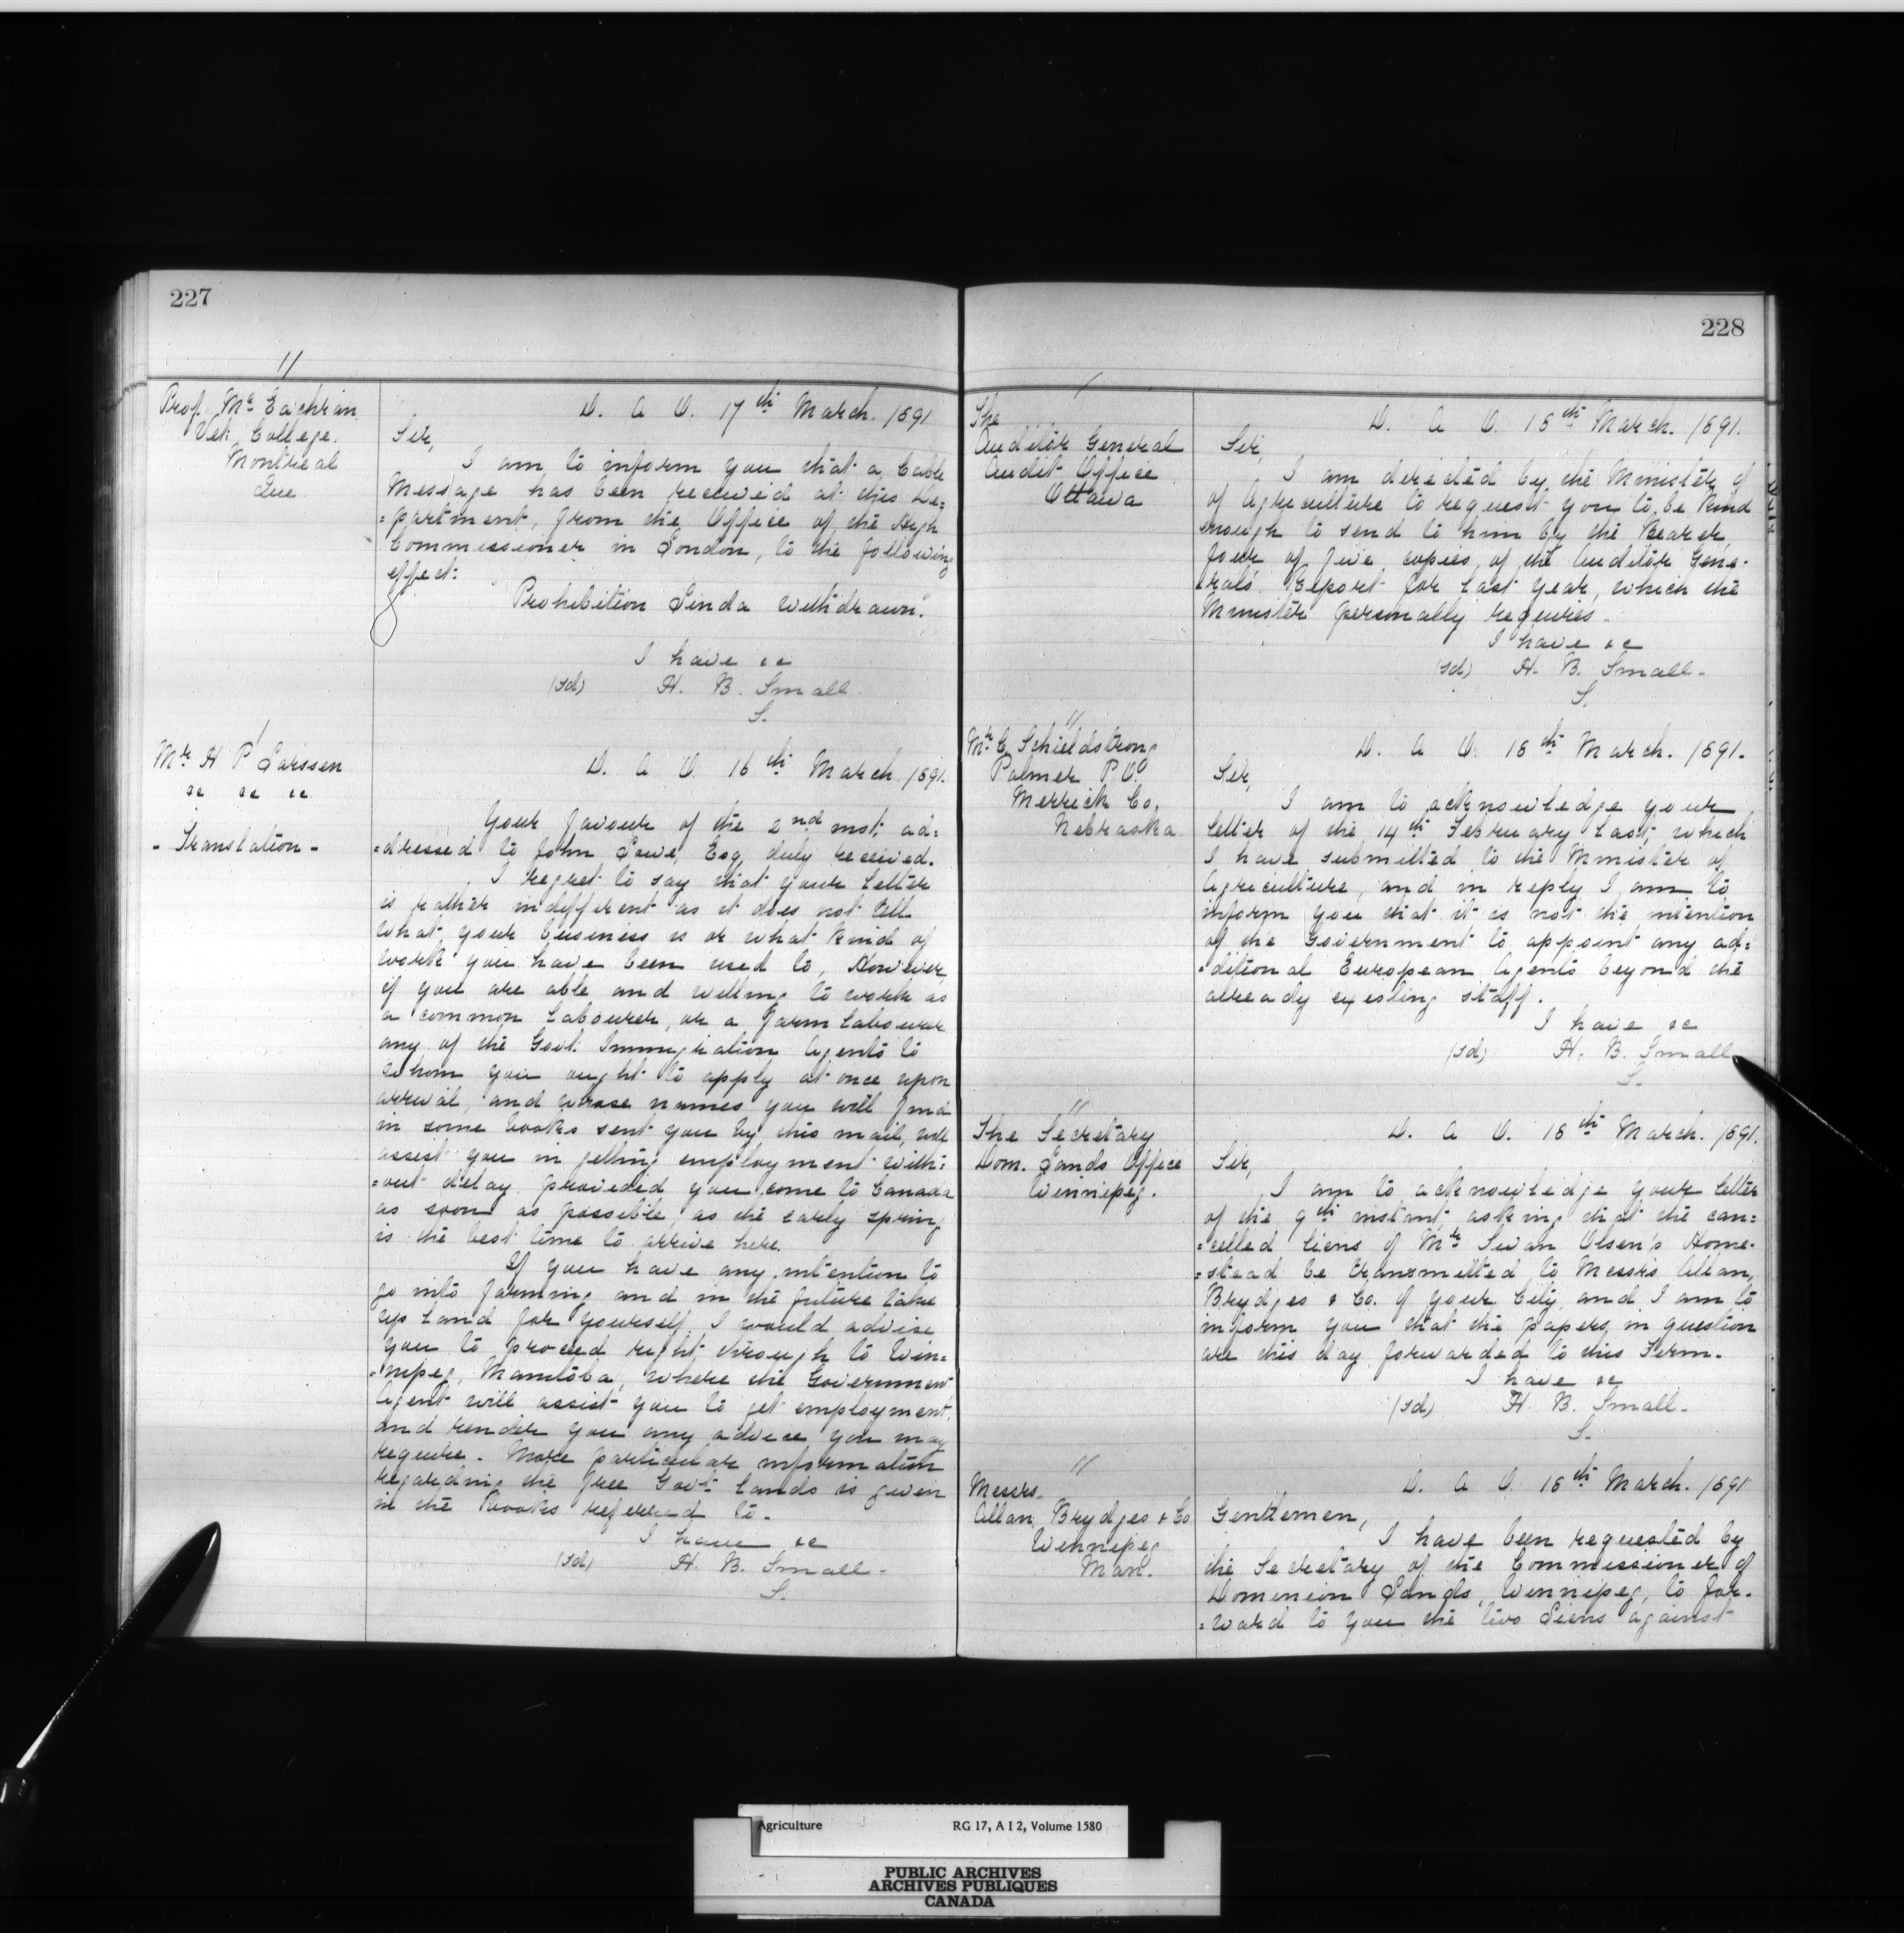 227
11
Prof. Mc Eachran
Vet. College.
Montreal
Que
D. A O. 17th March. 1891
Sir,
I am to inform you that a Cable
Message has been received at this De=
=partment, from the Office of the High
Commissioner in London, to the following
effect:
Prohibition Linda withdrawn."
I have &c
(sd) H. B. Small.
S.
1
Mr H P Larssen
&c &c &c
- Translation -
D. A O. 16th March 1891.
Your favour of the 2nd inst; ad=
=dressed to John Lowe, Esq, duly received.
I regret to say that your letter
is rather indifferent as it does not tell
what your business is or what kind of
work you have been used to, However,
if you are able and willing to work as
a common labourer, or a farm labourer
any of the Govt. Immigration Agents to
whom you ought to apply at once upon
arrival, and whose names you will find
in some books sent you by this mail, will
assist you in getting employment with=
=out delay provided you come to Canada
as soon as possible, as the early spring
is the best time to arrive here.
If you have any intention to
go into farming and in the future take
up land for yourself I would advise
you to proceed right through to Win=
=nipeg, Manitoba, where the Government
Agent will assist you to get employment,
and render you any advice you may
require. More particular information
regarding the free Govt. lands is given
in the Books referred to.
I have &c
(sd) H. B. Small.
S.
228
1
The
Auditor General
Audit Office
Ottawa
D. A O. 18th March. 1891.
Sir,
I am directed by the Minister of
of Agriculture to request you to be kind
enough to send to him by the Bearer
four of five copies of the Auditor Gene-
rals' Report for last year, which the
Minister personally requires.
I have &c
(sd) H. B. Small.
S.
11
Mr C. Schieldstrong
Palmer P.O.
Merrick Co,
Nebraska
D. A O. 18th March. 1891.
Sir,
I am to acknowledge your
letter of the 14th February last, which
I have submitted to the Minister of
Agriculture, and in reply I am to
inform you that it is not the intention
of the Government to appoint any ad=
=ditional European Agents beyond the
already existing staff.
I have &c
(sd) H. B. Small
S.
11
The Secretary
Dom. Lands Office
Winnipeg.
D. A O. 18th March. 1891.
Sir,
I am to acknowledge your letter
of the 9th instant asking that the can=
=celled liens of Mr Swan Olsen's Home-
=stead be transmitted to Messrs Allan,
Brydges & Co. of your City and I am to
inform you that the papers in question
are this day forwarded to this Firm.
I have &c
(sd) H. B. Small.
S.
11
Messrs.
Allan, Brydges & Co
Winnipeg
Man.
D. A O. 18th March. 1891
Gentlemen,
I have been requested by
the Secretary of the Commissioner of
Dominion Lands, Winnipeg, to for-
=ward to you the two Liens against
Agriculture RG 17, A I 2, Volume 1580
PUBLIC ARCHIVES
ARCHIVES PUBLIQUES
CANADA